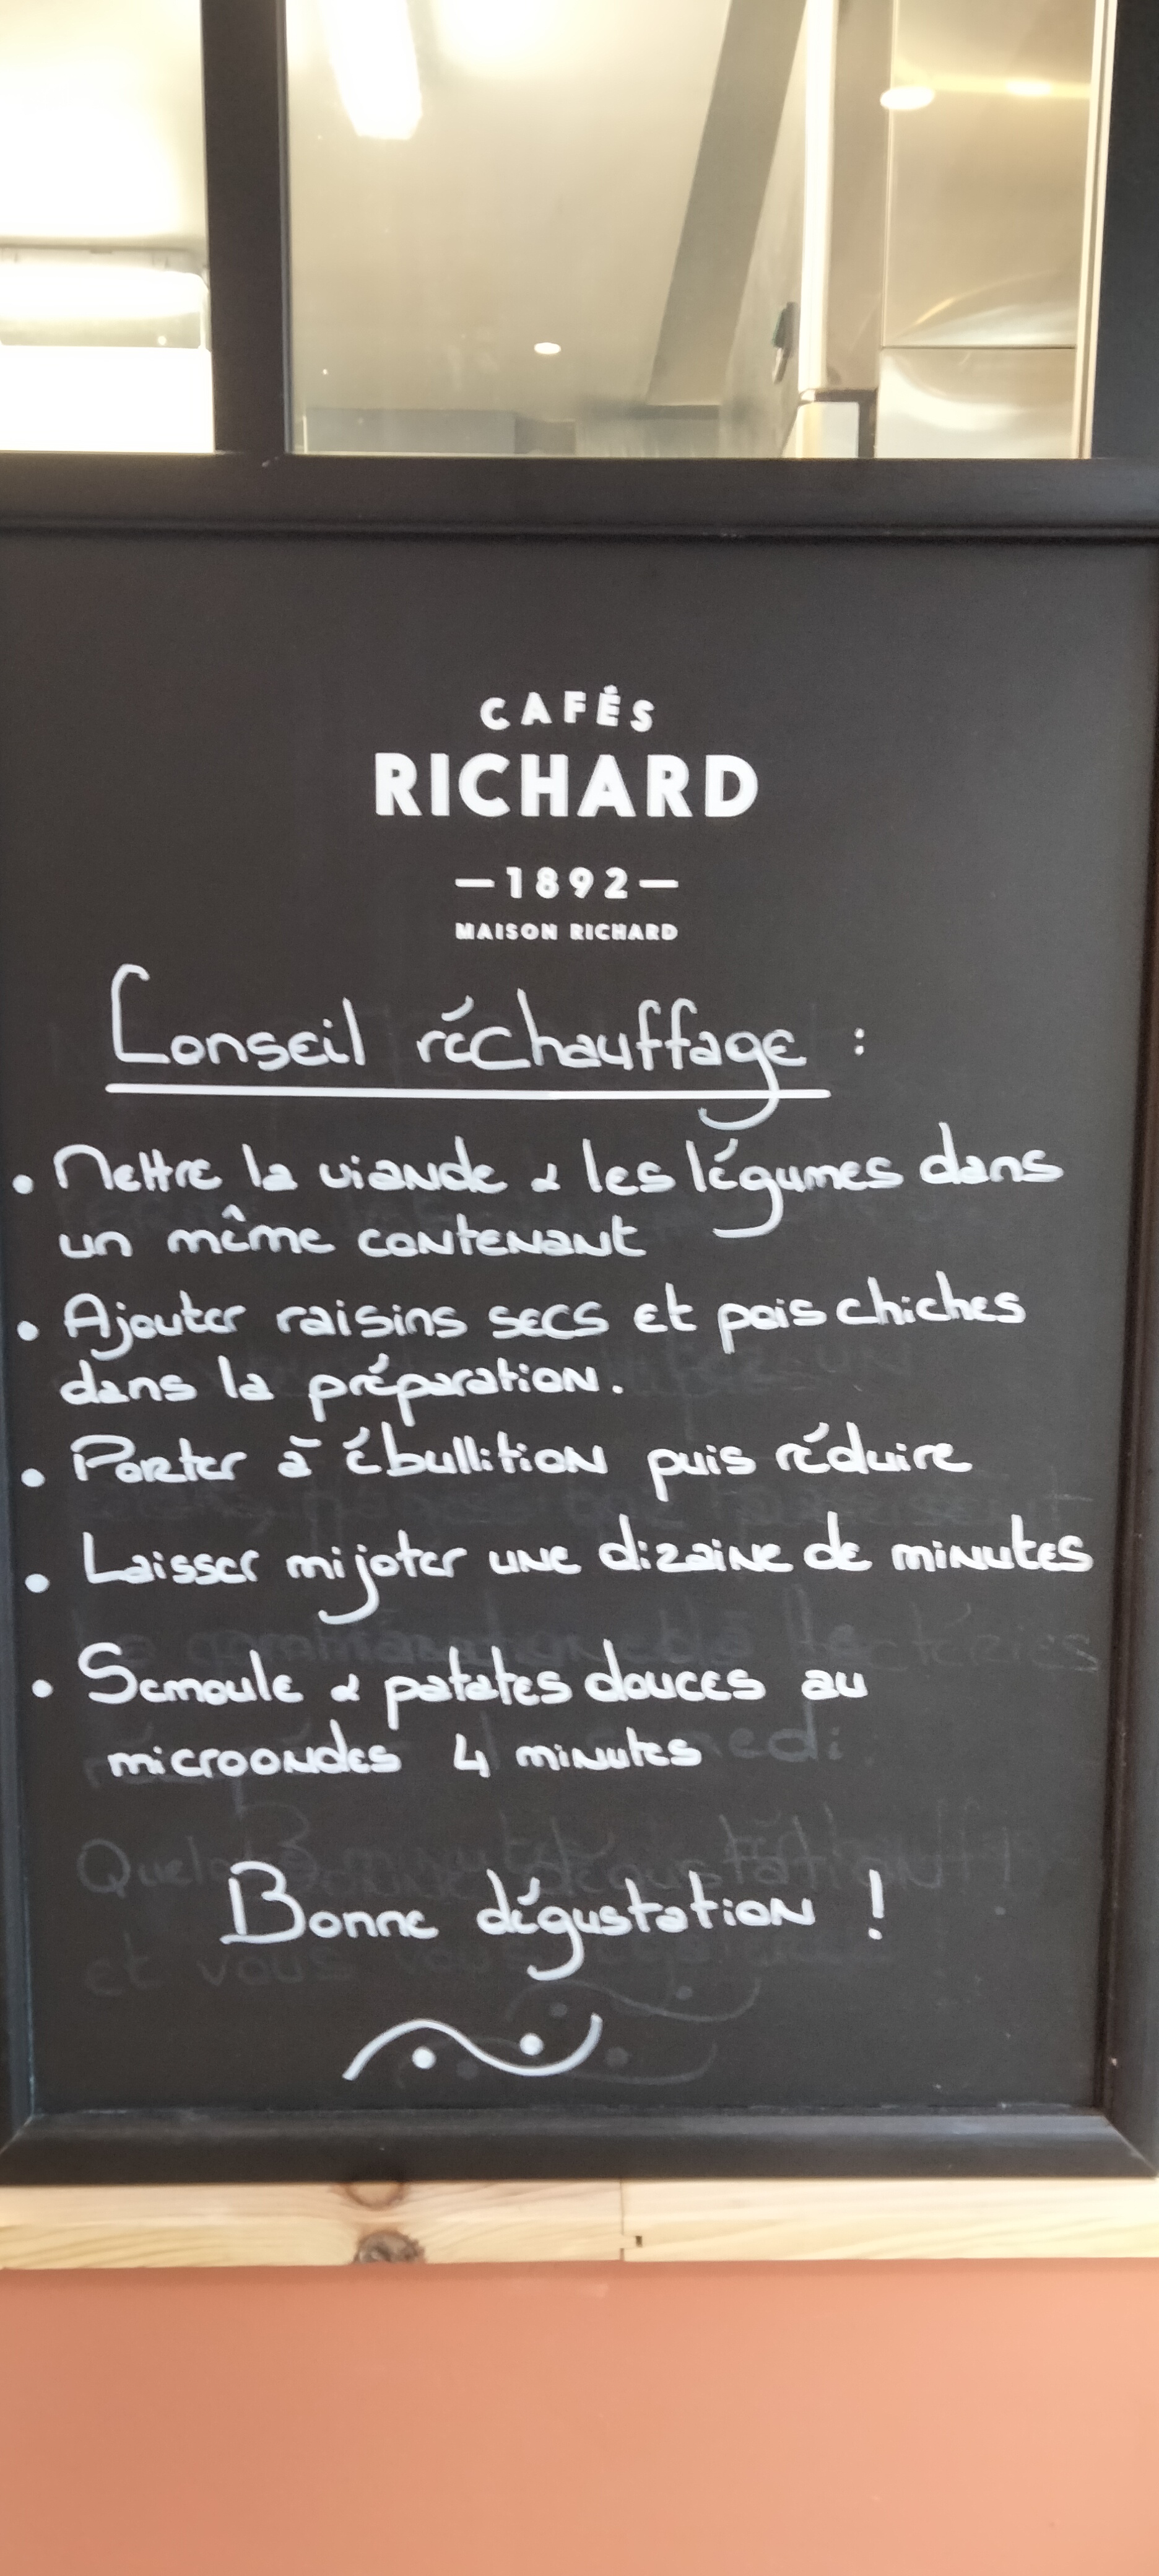 CAFÉS
RICHARD
—1892—
MAISON RICHARD
Conseil réchauffage :
• Mettre la viande & les légumes dans
un même contenant
• Ajouter raisins secs et pois chiches
dans la préparation.
• Porter à ébullition puis réduire
• Laisser mijoter une dizaine de minutes
• Semoule & patates douces au
microondes 4 minutes
Bonne dégustation !